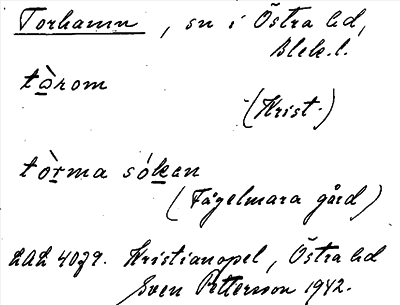 Torhamn, sn i Östra hd,
Blek. l.
tò̱rom
(Krist.)
tòr̲ma sók̲en
(Fågelmara gård)
LAL 4079. Kristianopel, Östra hd
Sven Pettersson 1942.